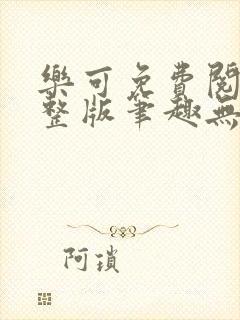 樂可免費閱
整版筆趣無
阿瑣